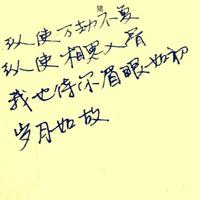 猪
纵使万劫不复
纵使相思入骨
我也待你眉眼如初
岁月如故